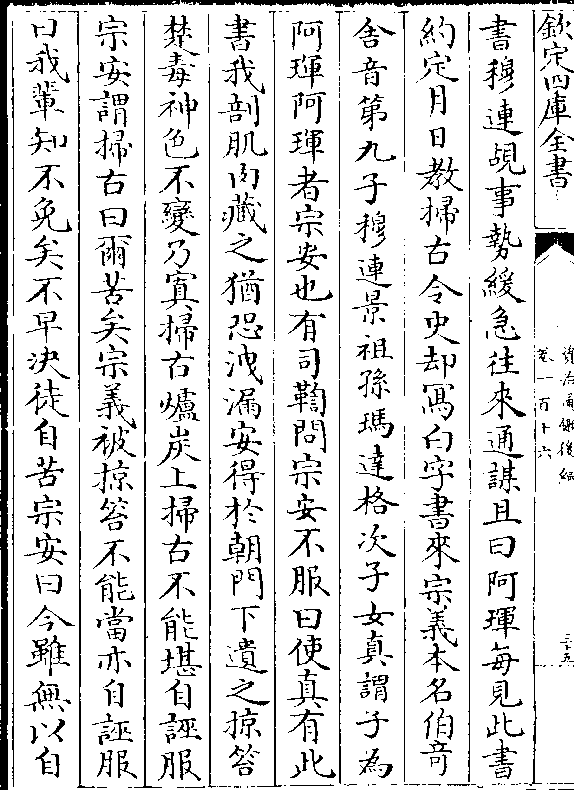 欽定四庫全書
資治通鑑後編
卷一百十六
三十五
書穆連覘事勢緩急往來通謀且曰阿琿每見此書
約定月日教掃古令史却寫白字書來宗義本名伯竒
舎音第九子穆連景祖孫瑪達格次子女真謂子為
阿琿阿琿者宗安也有司鞫問宗安不服曰使真有此
書我剖肌肉藏之猶恐洩漏安得於朝門下遺之掠笞
楚毒神色不變乃寘掃古爐炭上掃古不能堪自誣服
宗安謂掃古曰爾苦矣宗義被掠笞不能當亦自誣服
曰我輩知不免矣不早决徒自苦宗安曰今雖無以自